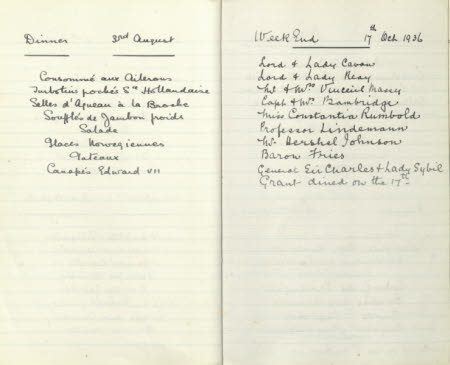 Dinner 3rd August
Consommé aux Ailerons
Turbotins pochés Sce Hollandaise
Selles d'Agneau à la Broche
Soufflés de Jambon froids
Salade
Glaces Norvegiennes
Gateaux
Canapés Edward VII
Week End 17th Oct 1936
Lord & Lady Cavan
Lord & Lady
Mr & Mrs Vincent Massey
Capt & Mrs Bambridge
Miss Constantia Rumbold
Professor Lindemann
Mr Hershel Johnson
Baron Fries
General Sir Charles & Lady Sybil
Grant dined on the 17th